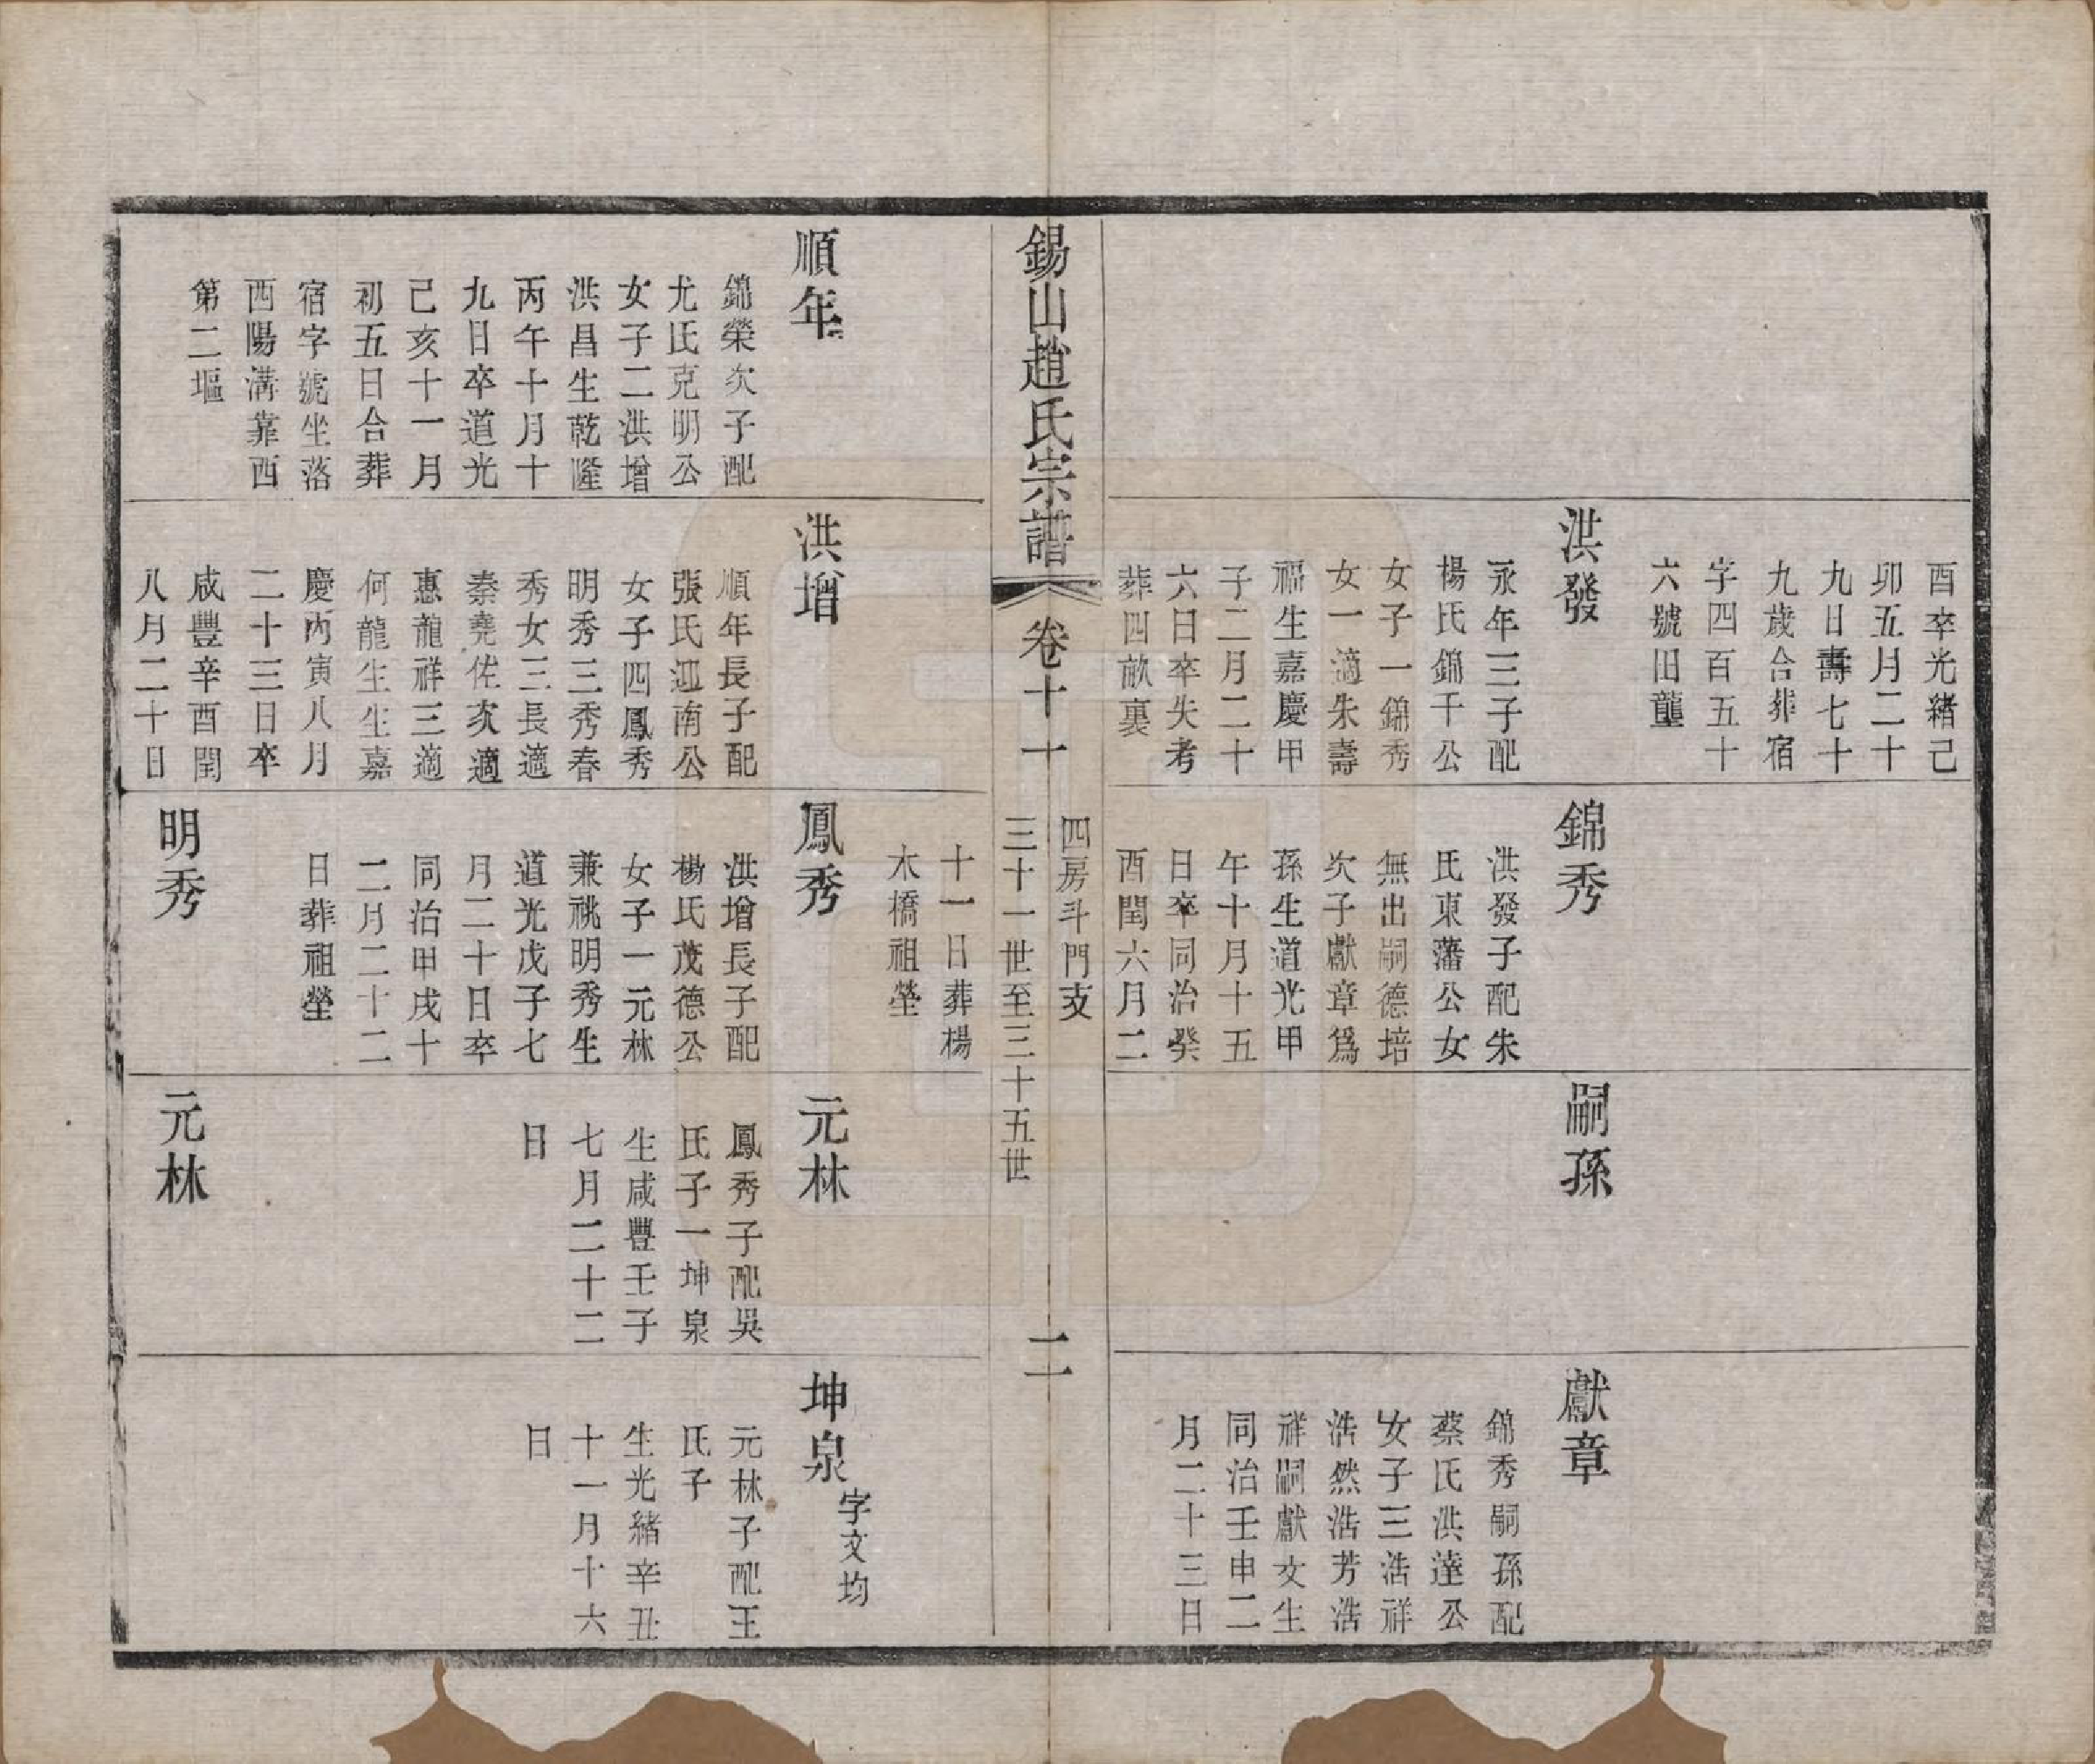 酉卒光緒己
卯五月二十
九日壽七十
九歲合葬宿
字四百五十
六號田壟
洪發
永年三子配
楊氏錦千公
女子一錦秀
女一適朱壽
福生嘉慶甲
子二月二十
六日卒失考
葬四畝裏
錦秀
洪發子配朱
氏東藩公女
無出嗣德培
次子獻章爲
孫生道光甲
午十月十五
日卒同治癸
酉閏六月二
十一日葬楊
木橋祖塋
嗣孫
獻章
錦秀嗣孫配
蔡氏洪達公
女子三浩祥
浩然浩芳浩
祥嗣獻文生
同治壬申二
月二十三日
錫山趙氏宗譜
卷十一
四房斗門支
三十一世至三十五世
二
順年
錦榮次子配
尤氏克明公
女子二洪增
洪昌生乾隆
丙午十月十
九日卒道光
己亥十一月
初五日合葬
宿字號坐落
西陽溝靠西
第二堰
洪增
順年長子配
張氏迎南公
女子四鳳秀
明秀三秀春
秀女三長適
秦堯佐次適
惠龍祥三適
何龍生生嘉
慶丙寅八月
二十三日卒
咸豐辛酉閏
八月二十日
鳳秀
洪增長子配
楊氏茂德公
女子一元林
兼祧明秀生
道光戊子七
月二十日卒
同治甲戌十
二月二十二
日葬祖塋
明秀
元林
鳳秀子配吳
氏子一坤泉
生咸豐壬子
七月二十二
日
元林
坤泉
字文均
元林子配王
氏子
生光緒辛丑
十一月十六
日